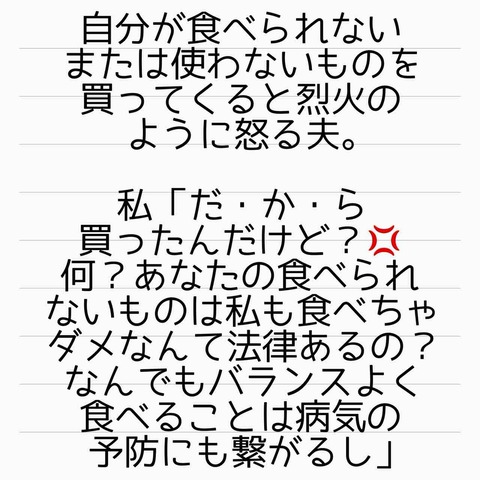 自分が食べられない
または使わないものを
買ってくると烈火の
ように怒る夫。
私「だ・か・ら
買ったんだけど？💢
何？あなたの食べられ
ないものは私も食べちゃ
ダメなんて法律あるの？
なんでもバランスよく
食べることは病気の
予防にも繋がるし」